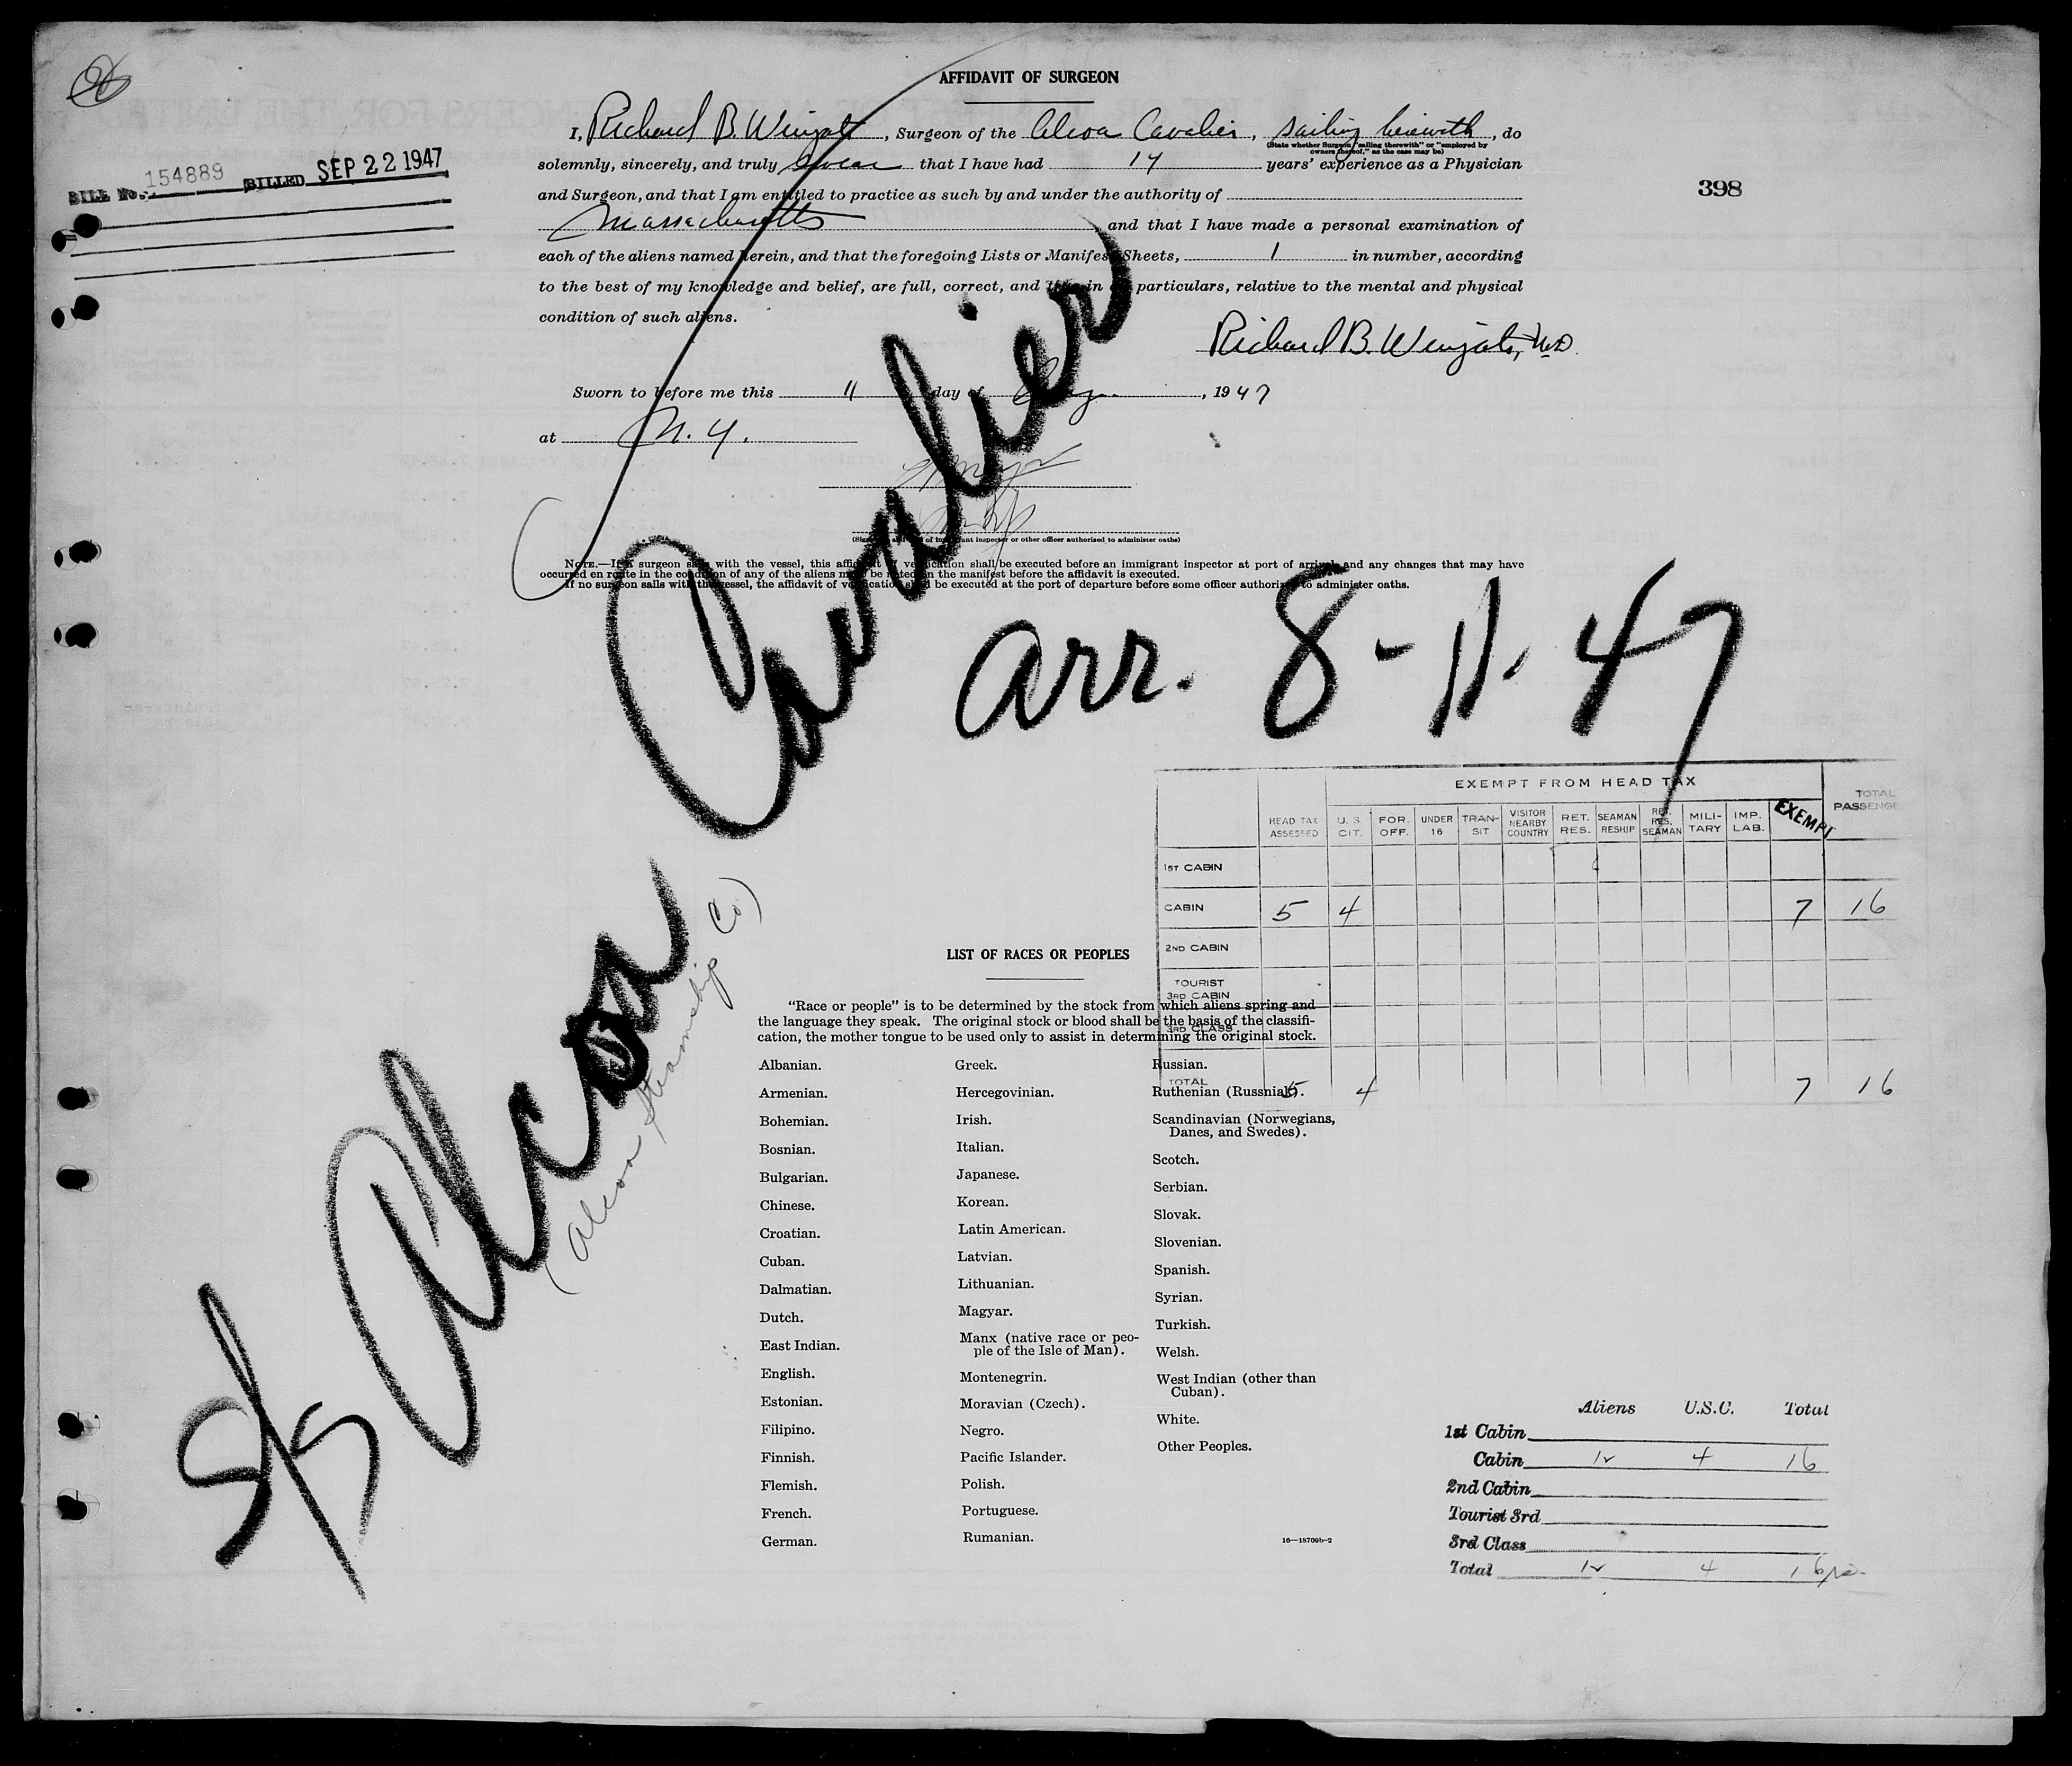 AFFIDAVIT OF SURGEON
I, Richard B. Wingate, Surgeon of the Alcoa Cavalier, sailing herewith, do
(State whether Surgeon "sailing therewith" or "employed by
owners thereof," as the case may be)
solemnly, sincerely, and truly swear that I have had 14 years' experience as a Physician
and Surgeon, and that I am entitled to practice as such by and under the authority of
Massachusetts and that I have made a personal examination of
each of the aliens named herein, and that the foregoing Lists or Manifest Sheets, 1 in number, according
to the best of my knowledge and belief, are full, correct, and true in all particulars, relative to the mental and physical
condition of such aliens.
Richard B. Wingate, M.D.
Sworn to before me this 11 day of Aug., 1947
at N.Y.
BILL No. 154889 BILLED SEP 22 1947
398
(Signature and title of immigrant inspector or other officer authorized to administer oaths)
NOTE.—If a surgeon sails with the vessel, this affidavit of verification shall be executed before an immigrant inspector at port of arrival, and any changes that may have
occurred en route in the condition of any of the aliens must be noted on the manifest before the affidavit is executed.
If no surgeon sails with the vessel, the affidavit of verification shall be executed at the port of departure before some officer authorized to administer oaths.
S/S Alcoa Cavalier
(Alcoa Steamship Co)
arr. 8-11-47
EXEMPT FROM HEAD TAX
HEAD TAX ASSESSED U.S. CIT. FOR. OFF. UNDER 16 TRAN-SIT VISITOR NEARBY COUNTRY RET. RES. SEAMAN RESHIP RET. RES. SEAMAN MILI-TARY IMP. LAB. EXEMPT TOTAL PASSENGE
1ST CABIN
CABIN 5 4 7 16
2ND CABIN
TOURIST
3RD CABIN
3RD CLASS
TOTAL 5 4 7 16
LIST OF RACES OR PEOPLES
"Race or people" is to be determined by the stock from which aliens spring and
the language they speak. The original stock or blood shall be the basis of the classifi-
cation, the mother tongue to be used only to assist in determining the original stock.
Albanian.
Armenian.
Bohemian.
Bosnian.
Bulgarian.
Chinese.
Croatian.
Cuban.
Dalmatian.
Dutch.
East Indian.
English.
Estonian.
Filipino.
Finnish.
Flemish.
French.
German.
Greek.
Hercegovinian.
Irish.
Italian.
Japanese.
Korean.
Latin American.
Latvian.
Lithuanian.
Magyar.
Manx (native race or peo-
ple of the Isle of Man).
Montenegrin.
Moravian (Czech).
Negro.
Pacific Islander.
Polish.
Portuguese.
Rumanian.
Russian.
Ruthenian (Russniak).
Scandinavian (Norwegians,
Danes, and Swedes).
Scotch.
Serbian.
Slovak.
Slovenian.
Spanish.
Syrian.
Turkish.
Welsh.
West Indian (other than
Cuban).
White.
Other Peoples.
16—18709b-2
Aliens U.S.C. Total
1st Cabin
Cabin 12 4 16
2nd Cabin
Tourist 3rd
3rd Class
Total 12 4 16